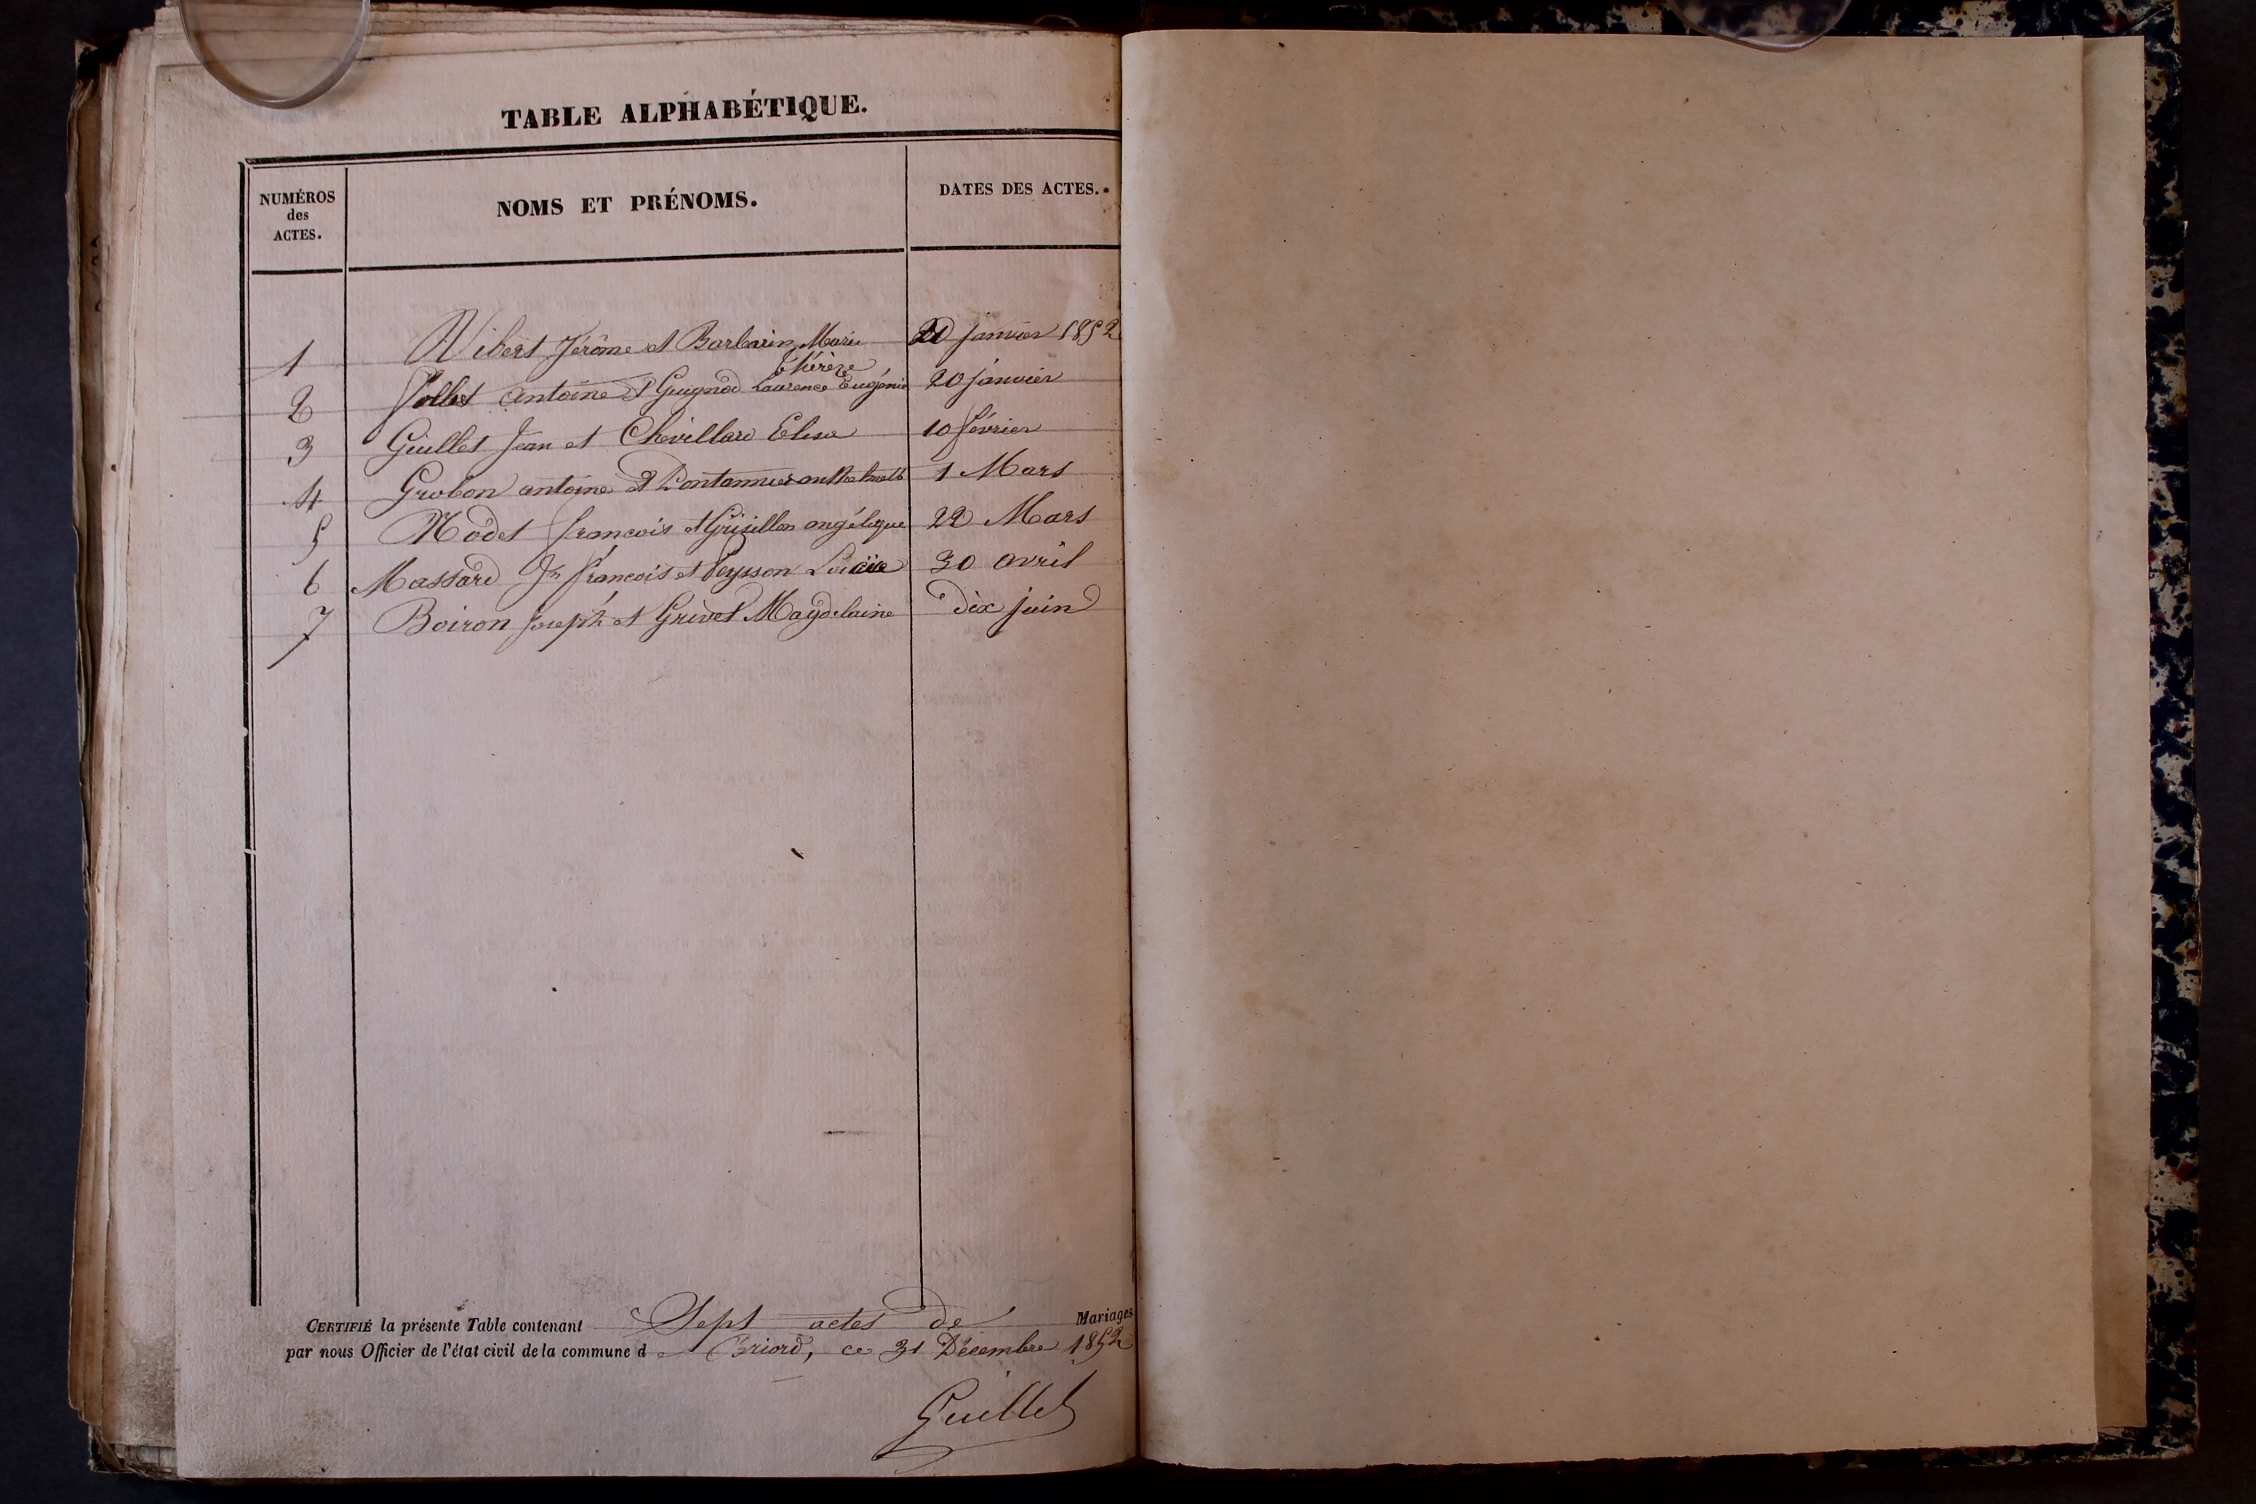 TABLE ALPHABÉTIQUE.
NUMÉROS des ACTES.
NOMS ET PRÉNOMS.
DATES DES ACTES.
1 Vibert Jérôme et Barbarin Marie Thérèze 20 janvier 1852
2 Jollet antoine et Guignod Laurence Eugénie 20 janvier
3 Guillet Jean et Chevillard Elise 10 février
4 Grobon antoine et 1 Mars
5 Nodet francois et Grisillon angélique 22 Mars
6 Massard Jn francois et Peysson 30 avril
7 Boiron joseph et Grivet Magdelaine dix juin
CERTIFIÉ la présente Table contenant Sept actes de Mariages
par nous Officier de l'état civil de la commune de Briord, ce 31 Décembre 1852
Guillet